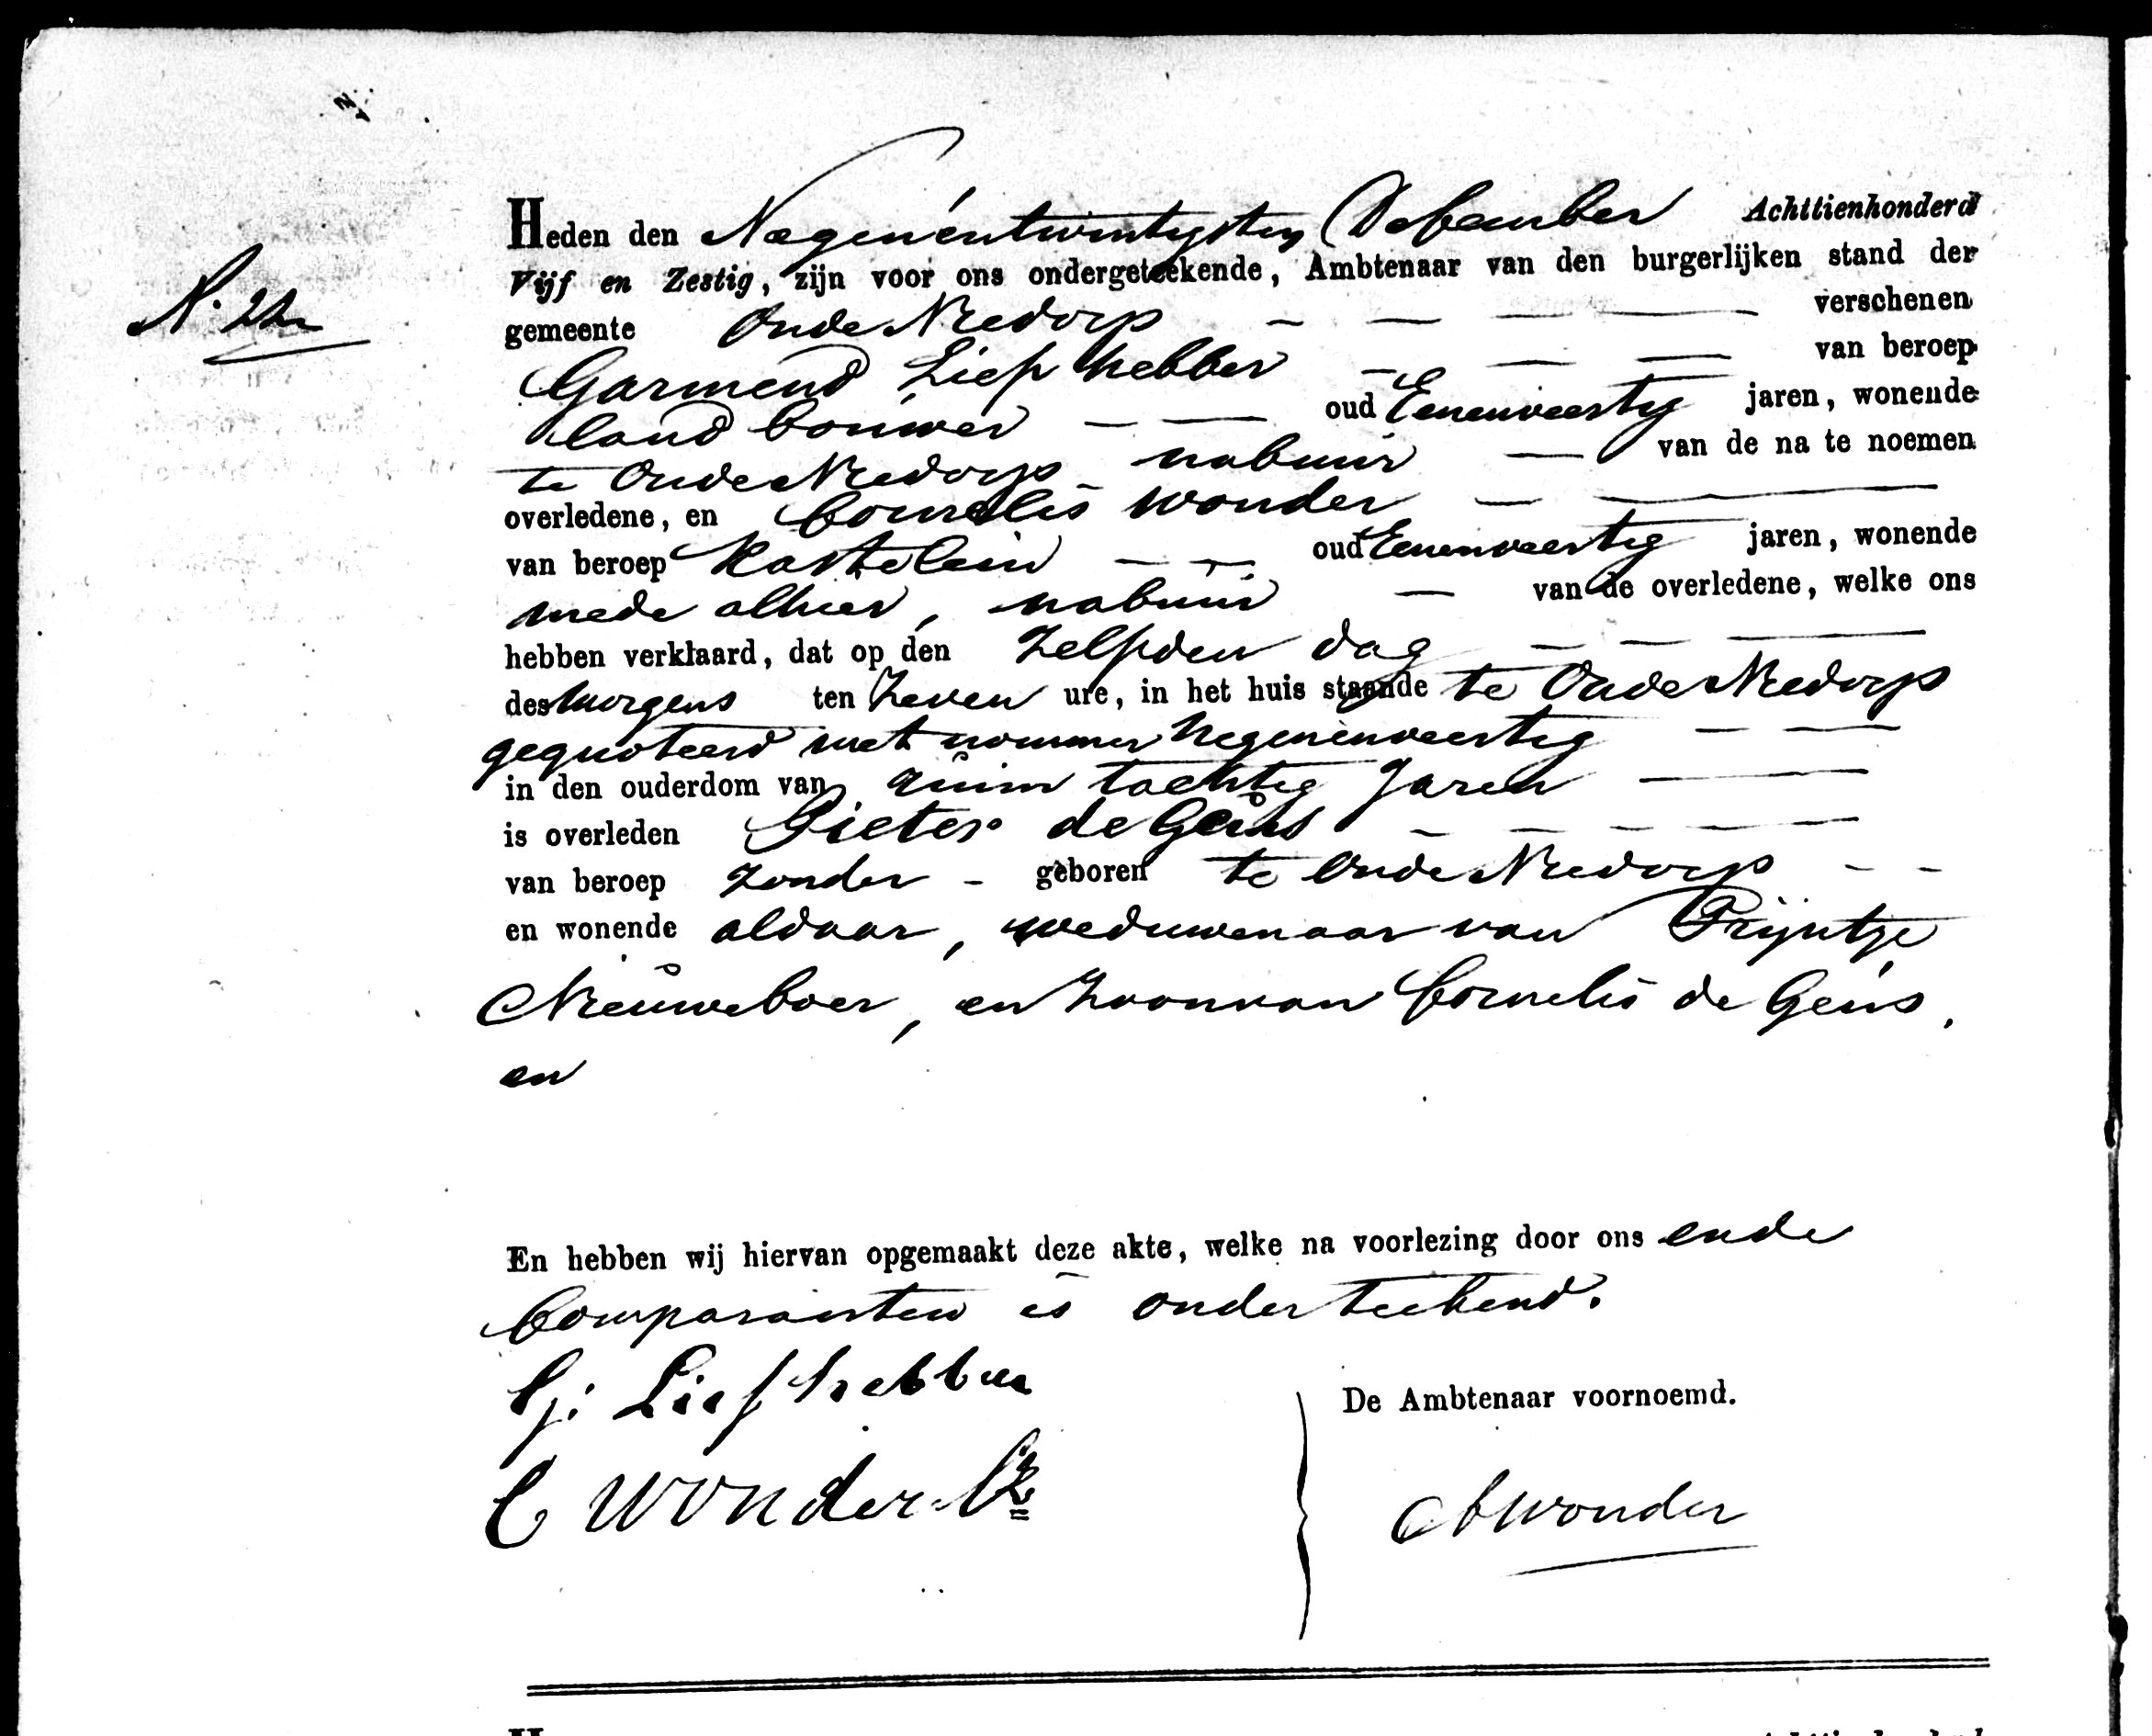 Heden den Negenentwintigsten December Achttienhonderd
Vijf en Zestig, zijn voor ons ondergeteekende, Ambtenaar van den burgerlijken stand der
gemeente Oude Niedorp verschenen
Garmend Liefhebber van beroep
landbouwer oud Eenenveertig jaren, wonende
te Oude Niedorp nabuur van de na te noemen
overledene, en Cornelis Wonder
van beroep Kastelein oud Eenenveertig jaren, wonende
mede alhier, nabuur van de overledene, welke ons
hebben verklaard, dat op den Zelfden dag
des morgens ten Zeven ure, in het huis staande te Oude Niedorp
gequoteerd met nommer Negenenveertig
in den ouderdom van ruim tachtig Jaren
is overleden Pieter de Geus
van beroep zonder geboren te Oude Niedorp
en wonende aldaar, weduwenaar van Trijntje
Nieuweboer, en Zoon van Cornelis de Geus,
en
En hebben wij hiervan opgemaakt deze akte, welke na voorlezing door ons en de
Comparanten is onderteekend.
G: Liefhebber
De Ambtenaar voornoemd.
C Wonder Cz
Wonder